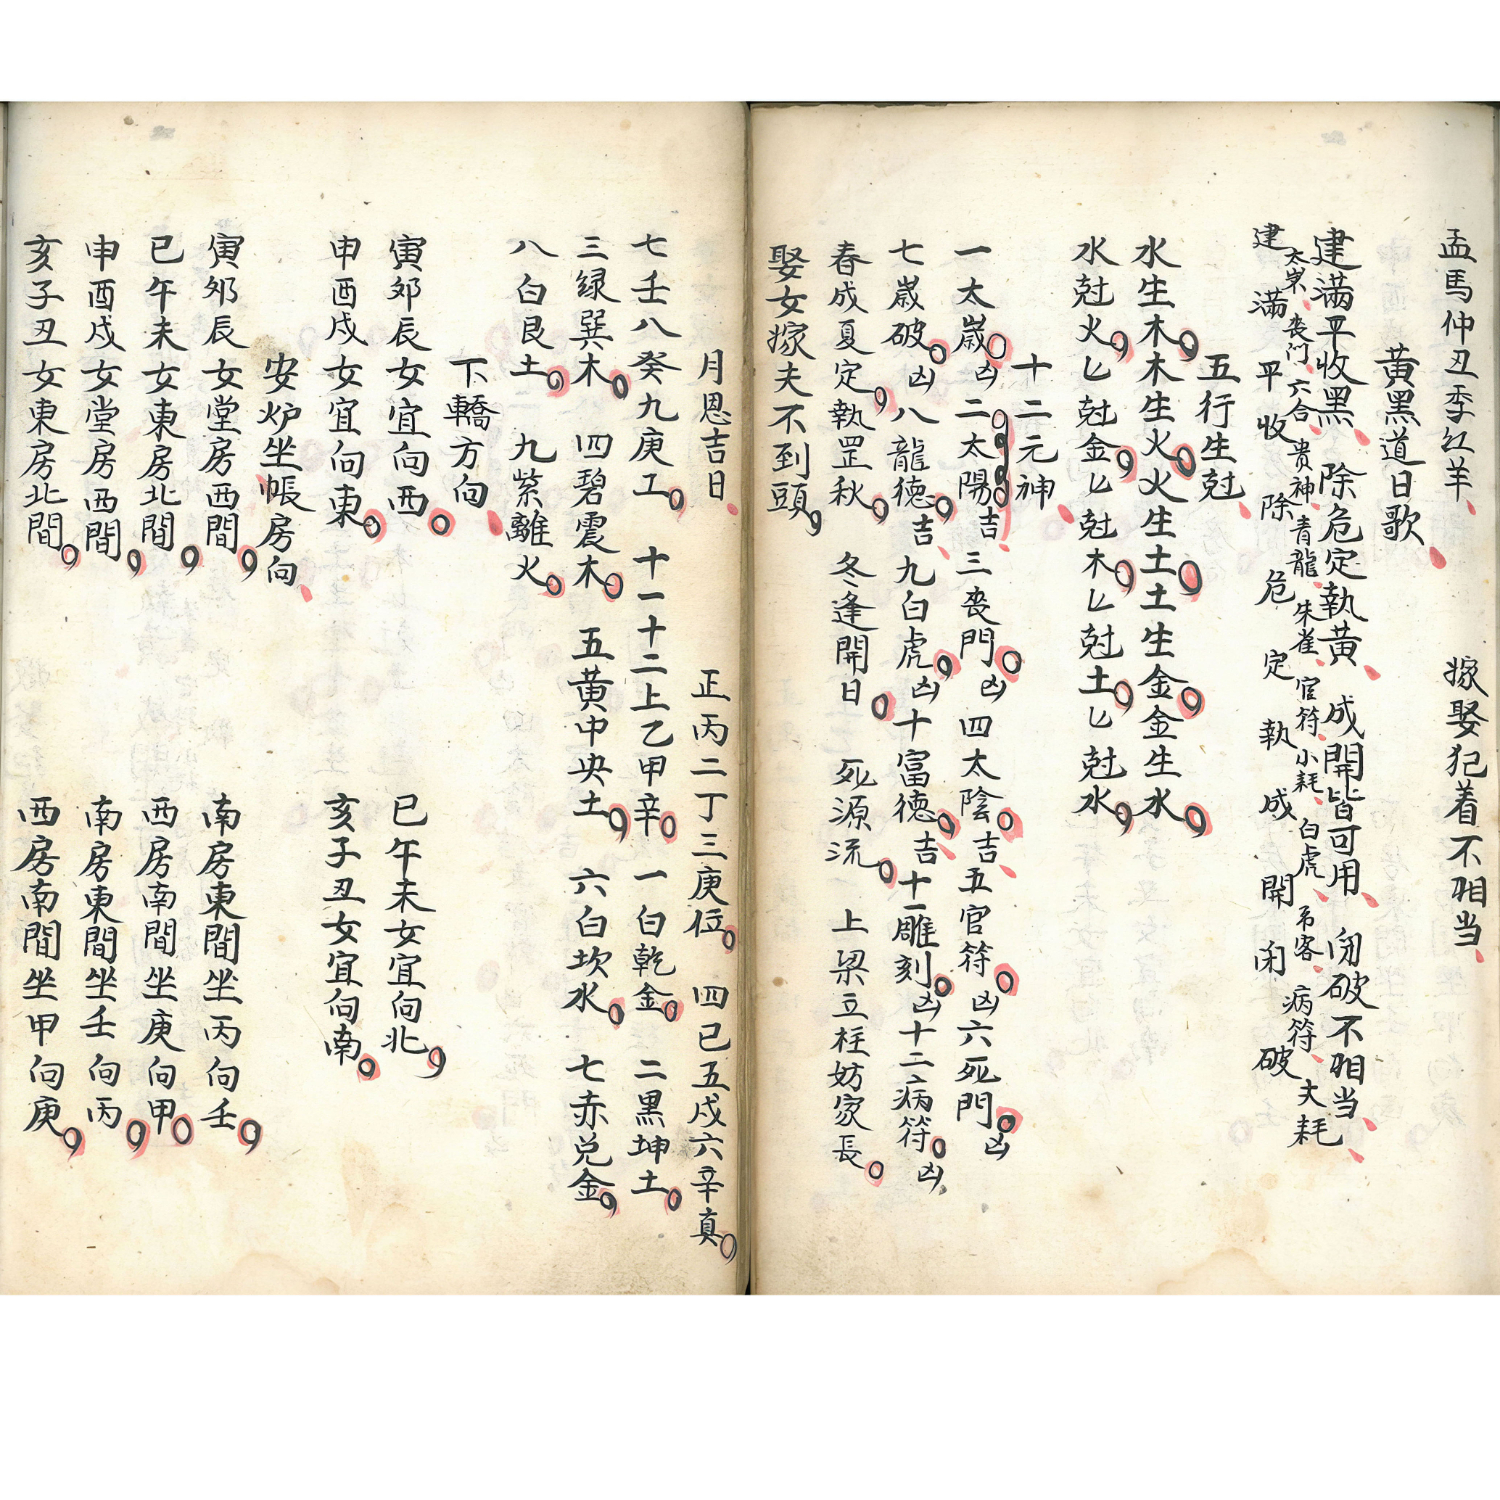 孟馬仲丑季红羊　嫁娶犯着不相当
黄黑道日歌
建满平收黑　除危定執黄　成開皆可用　闭破不相当
太歲　喪门　六合　贵神　青龍　朱雀　官符　小耗　白虎　吊客　病符　大耗
建　满　平　收　除　危　定　執　成　開　闭　破
五行生尅
水生木木生火火生土土生金金生水
水尅火匕尅金匕尅木匕尅土匕尅水
十二元神
一太歲凶二太陽吉三喪門凶四太陰吉五官符凶六死門凶
七歲破凶八龍德吉九白虎凶十富德吉十一雕刻凶十二病符凶
春成夏定執罡秋　冬逢開日　死源流　上梁立柱妨家長
娶女嫁夫不到頭
月恩吉日　正丙二丁三庚位　四已五戍六辛真
七壬八癸九庚工　十一十二上乙甲辛　一白乾金　二黑坤土
三緑巽木　四碧震木　五黄中央土　六白坎水　七赤兑金
八白艮土　九紫離火
下轎方向
寅夘辰女宜向西　巳午未女宜向北
申酉戍女宜向東　亥子丑女宜向南
安炉坐帳房向
寅夘辰女堂房西間　南房東間坐丙向壬
已午未女東房北間　西房南間坐庚向甲
申酉戍女堂房西間　南房東間坐壬向丙
亥子丑女東房北間　西房南間坐甲向庚